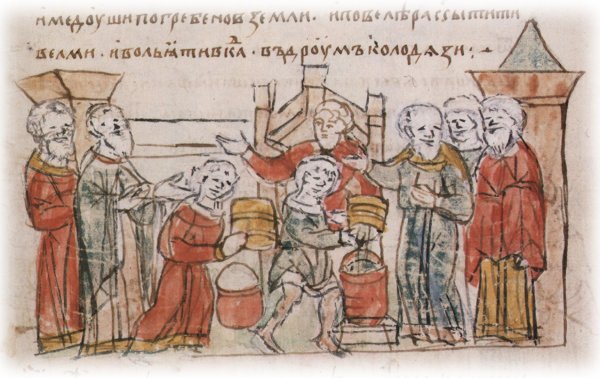 имедоуши погребено в земли · и повелѣ рассытити
велми · и вольꙗти в каⷣ · въ дроумъ колодязи ;